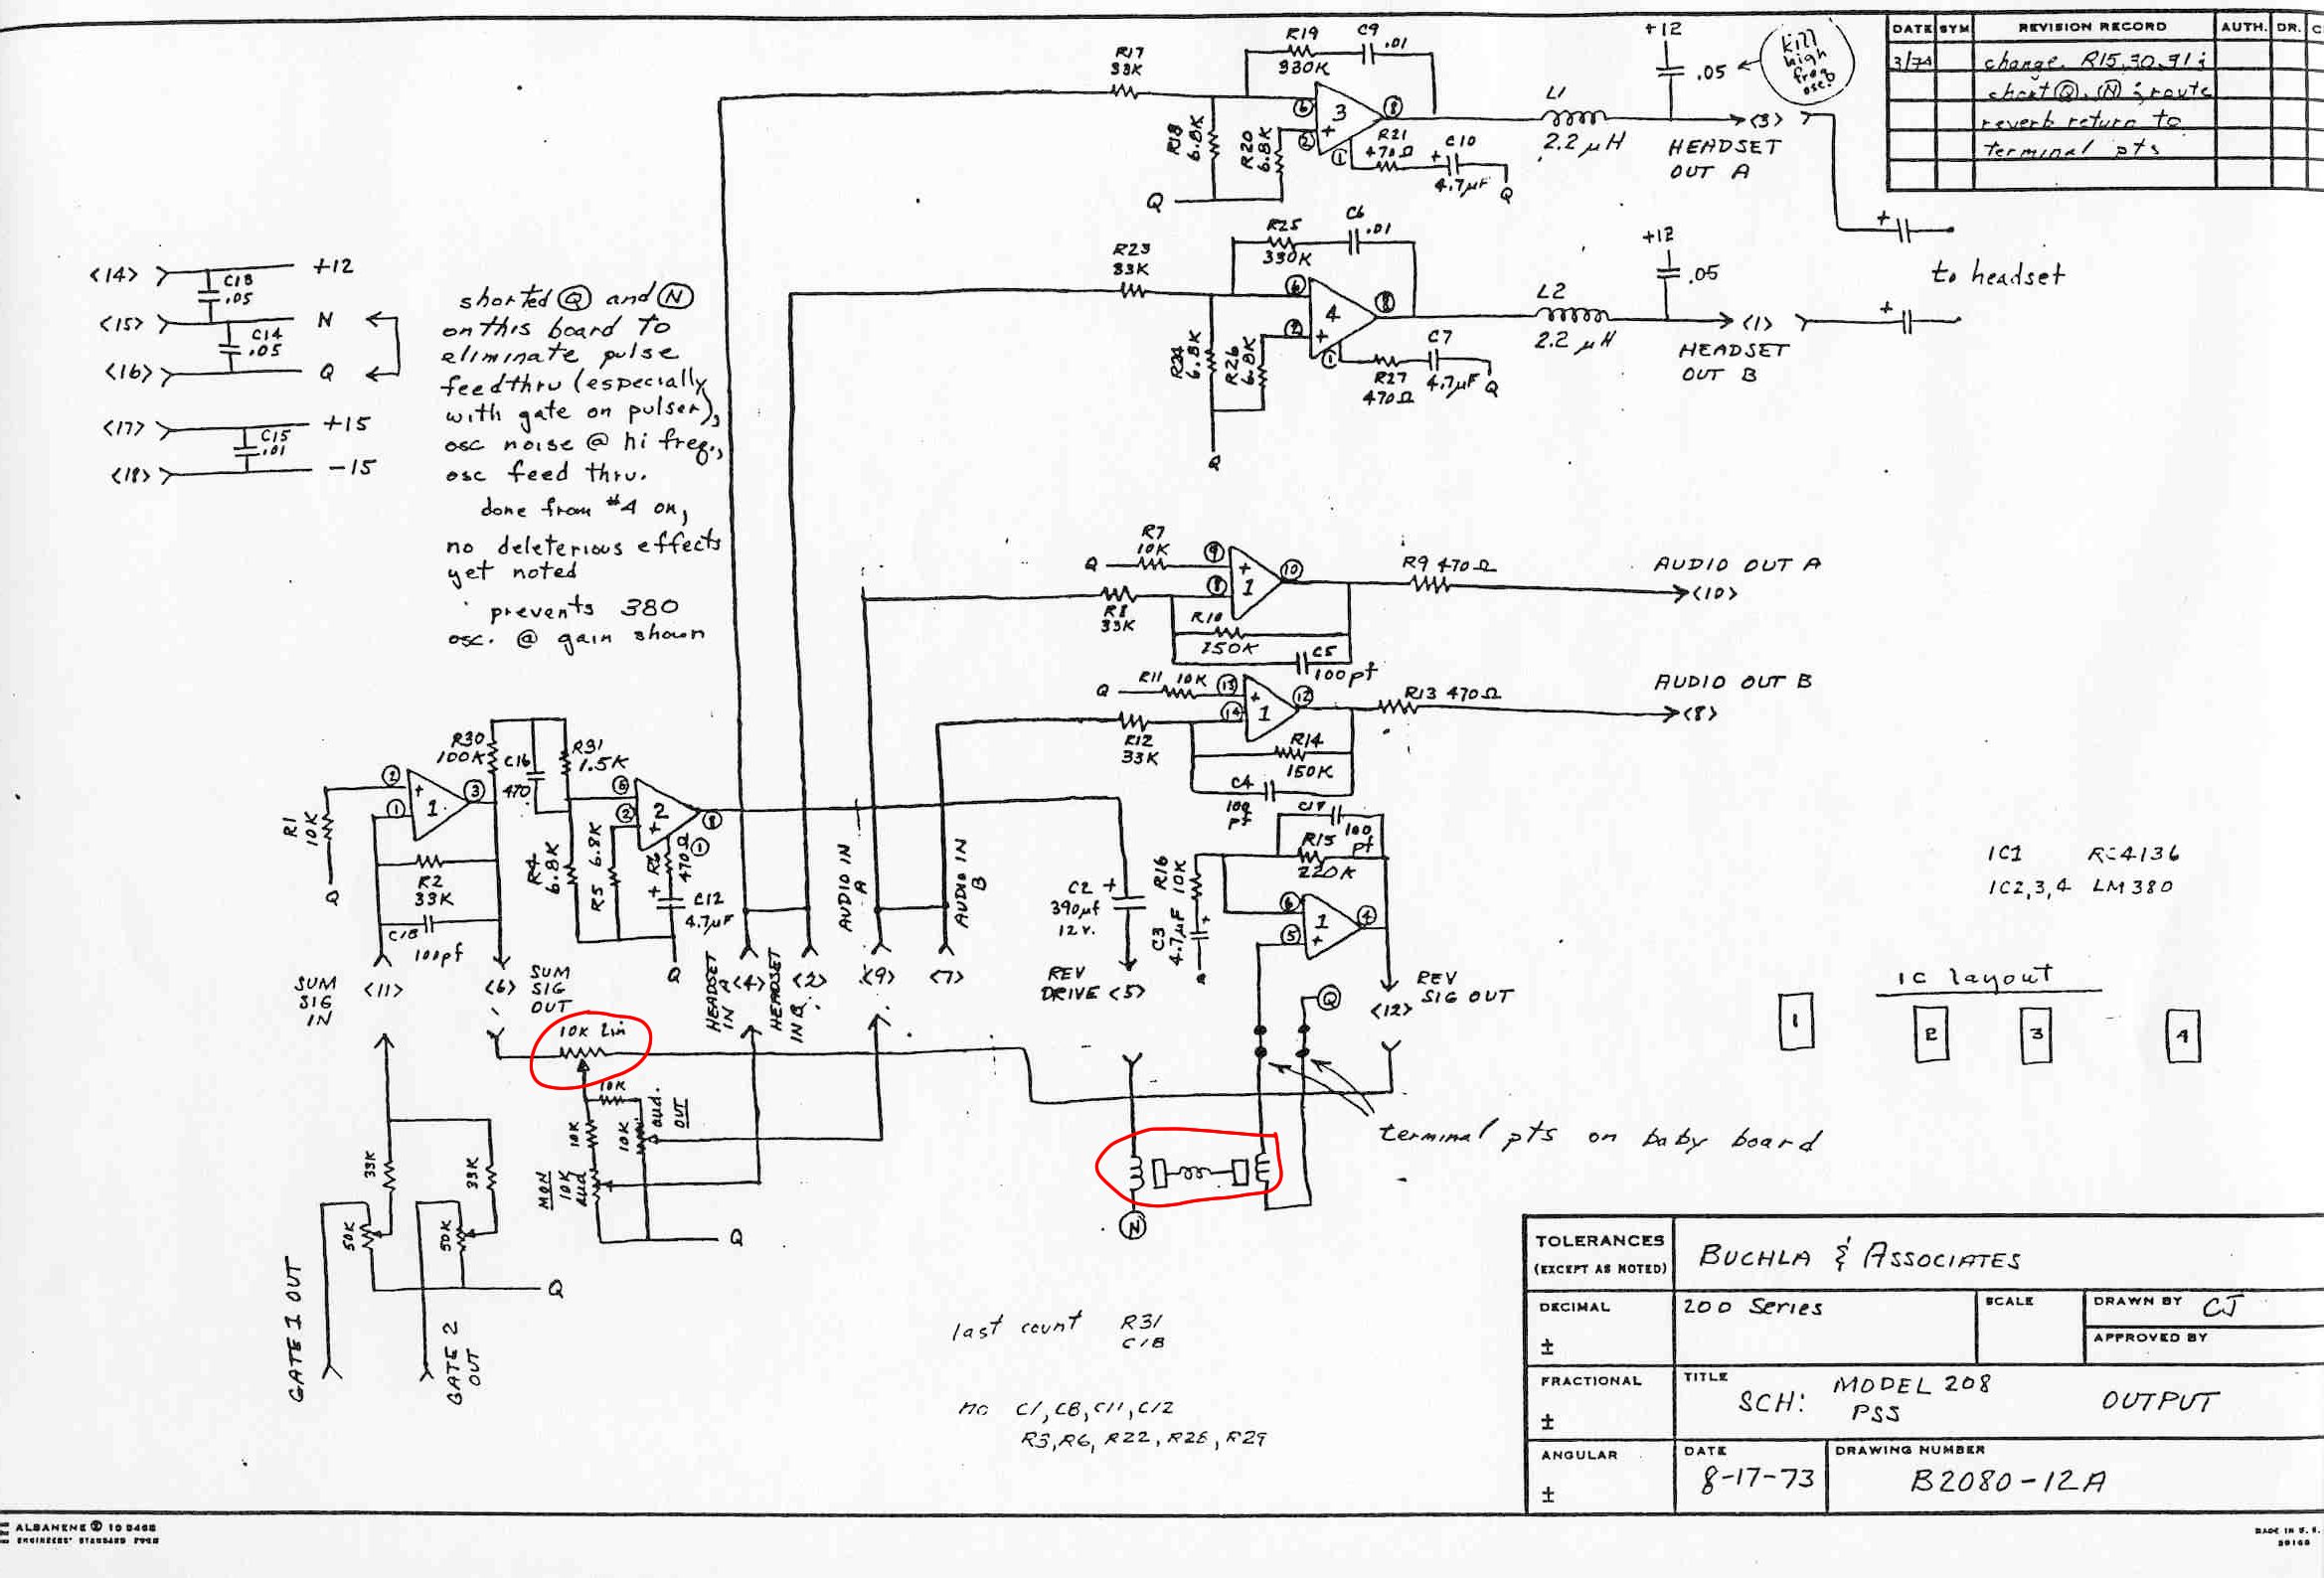 DATE SYM REVISION RECORD AUTH. DR.
3/74 change R15,30,31;
short Q, N ; route
reverb return to
terminal pts
R17
33K
R19
330K
C9
.01
6
2
3
+
8
1
R18
6.8K
R20
6.8K
R21
470Ω
+ C10
4.7µF
Q
Q
L1
2.2 µH
+12
.05
kill
high
freq
osc.
<3>
HEADSET
OUT A
+
R23
33K
R25
330K
C6
.01
6
2
4
+
8
1
R24
6.8K
R26
6.8K
R27
470Ω
C7
4.7µF
Q
Q
L2
2.2 µH
+12
.05
<1>
HEADSET
OUT B
+
to headset
<14> +12
C13
.05
<15> N
C14
.05
<16> Q
<17> +15
C15
.01
<18> -15
shorted Q and N
on this board to
eliminate pulse
feedthru (especially
with gate on pulser),
osc noise @ hi freq.,
osc feed thru.
done from #4 on,
no deleterious effects
yet noted
prevents 380
osc. @ gain shown
R7
10K
Q
9
8
+
1
10
R8
33K
R10
150K
C5
100pf
R9 470Ω
AUDIO OUT A
<10>
Q
R11 10K
13
14
+
1
12
R12
33K
R14
150K
C4
100
pf
R13 470Ω
AUDIO OUT B
<8>
R30
100K
C16
470
R31
1.5K
2
1
+
1
3
R1
10K
Q
R2
33K
C18
100pf
6
2
2
+
8
1
R4
6.8K
R5 6.8K
R6
470Ω
+
C12
4.7µF
Q
SUM
SIG
IN
<11>
<6>
SUM
SIG
OUT
HEADSET
IN A
<4>
HEADSET
IN B
<2>
AUDIO IN
A
<9>
AUDIO IN
B
<7>
C2 +
390µf
12v.
REV
DRIVE <5>
C17
100
pf
R15
220K
R16
10K
C3
4.7µF
+
6
5
1
+
4
Q
REV
SIG OUT
<12>
IC1 RC4136
IC2,3,4 LM380
IC layout
1
2
3
4
10K lin
10K
10K
10K
aud.
OUT
MON
10K
aud
Q
33K
33K
50K
50K
Q
GATE 1 OUT
GATE 2
OUT
N
terminal pts on baby board
last count R31
C18
no C1, C8, C11, C12
R3, R6, R22, R28, R29
TOLERANCES
(EXCEPT AS NOTED)
BUCHLA & ASSOCIATES
DECIMAL
±
200 Series
SCALE
DRAWN BY CJ
APPROVED BY
FRACTIONAL
±
TITLE
SCH: MODEL 208
PSS
OUTPUT
ANGULAR
±
DATE
8-17-73
DRAWING NUMBER
B2080-12A
ALBANENE
ENGINEERS' STANDARD FORM
MADE IN U. S.